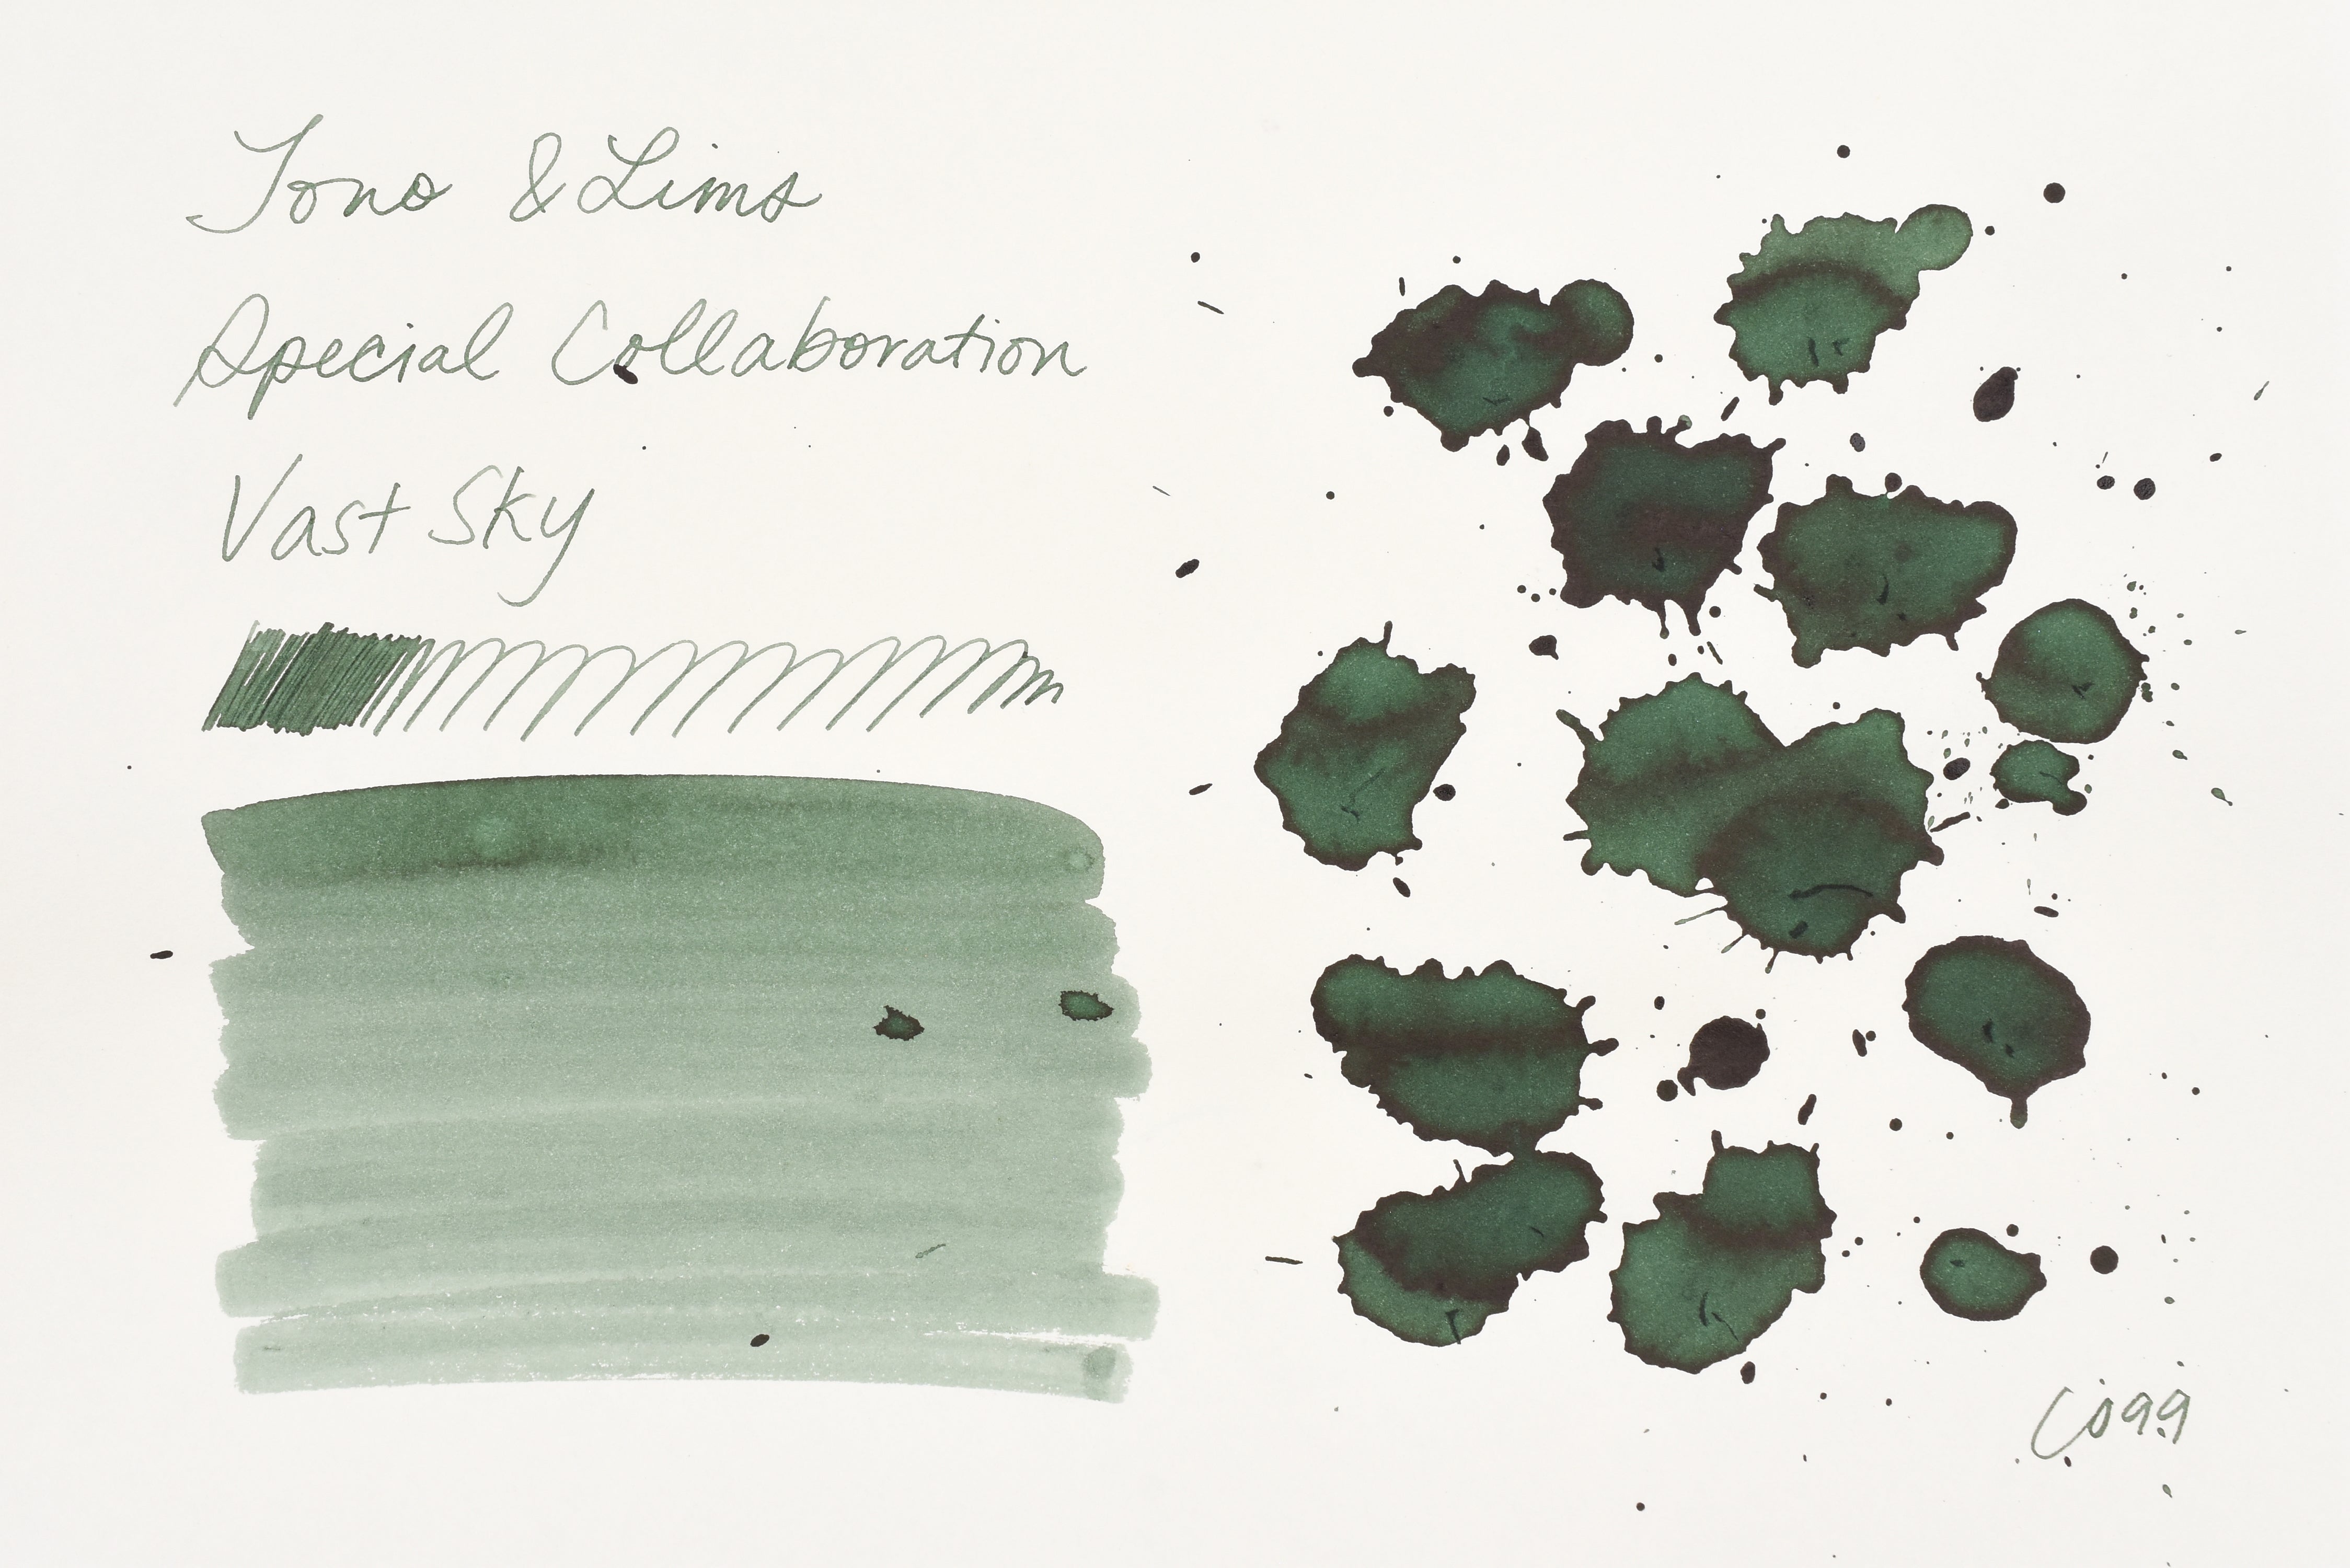 Tono & Lims
Special Collaboration
Vast Sky
Co99